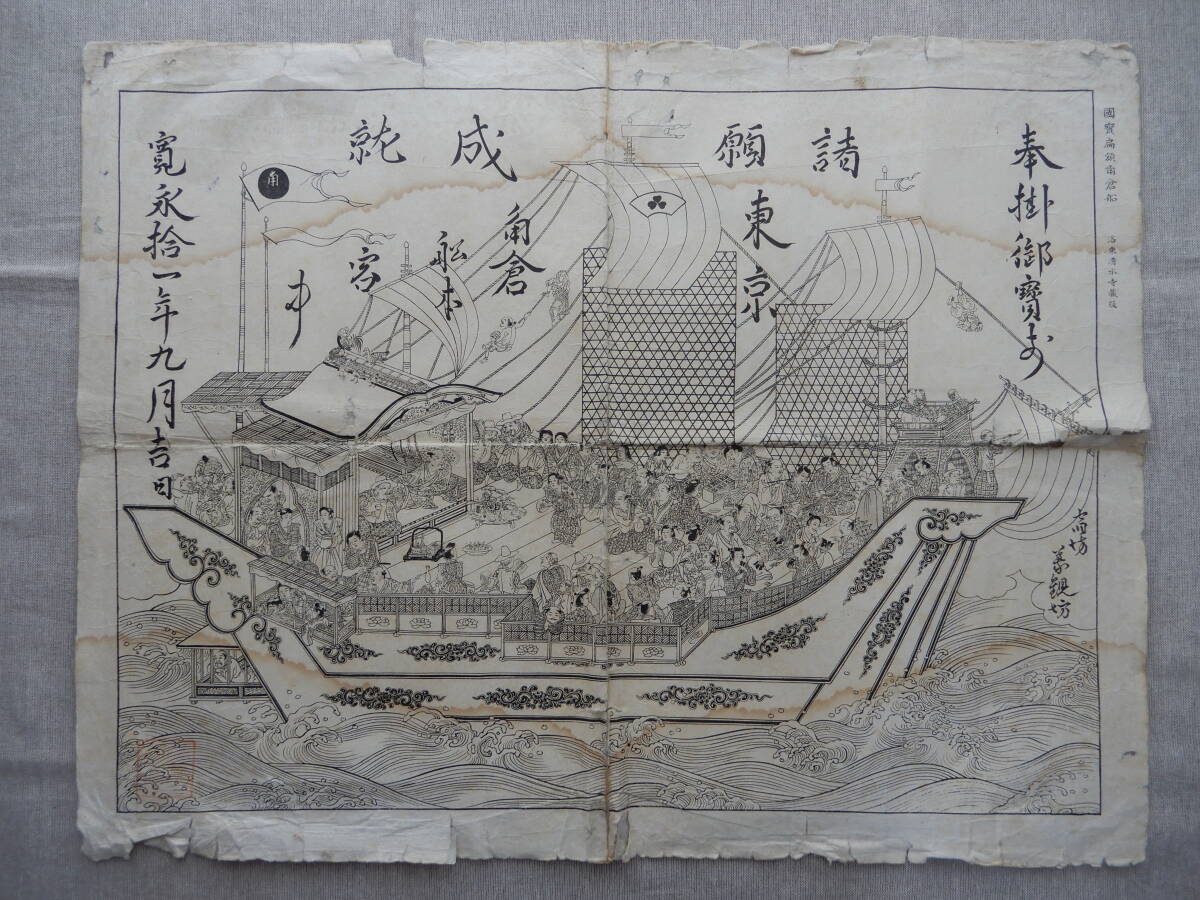 國寶扁額角倉船
洛東清水寺藏版
奉掛御寶前
諸願成就
東京
角倉
船本
客
中
寛永拾一年九月吉日
義観坊
角